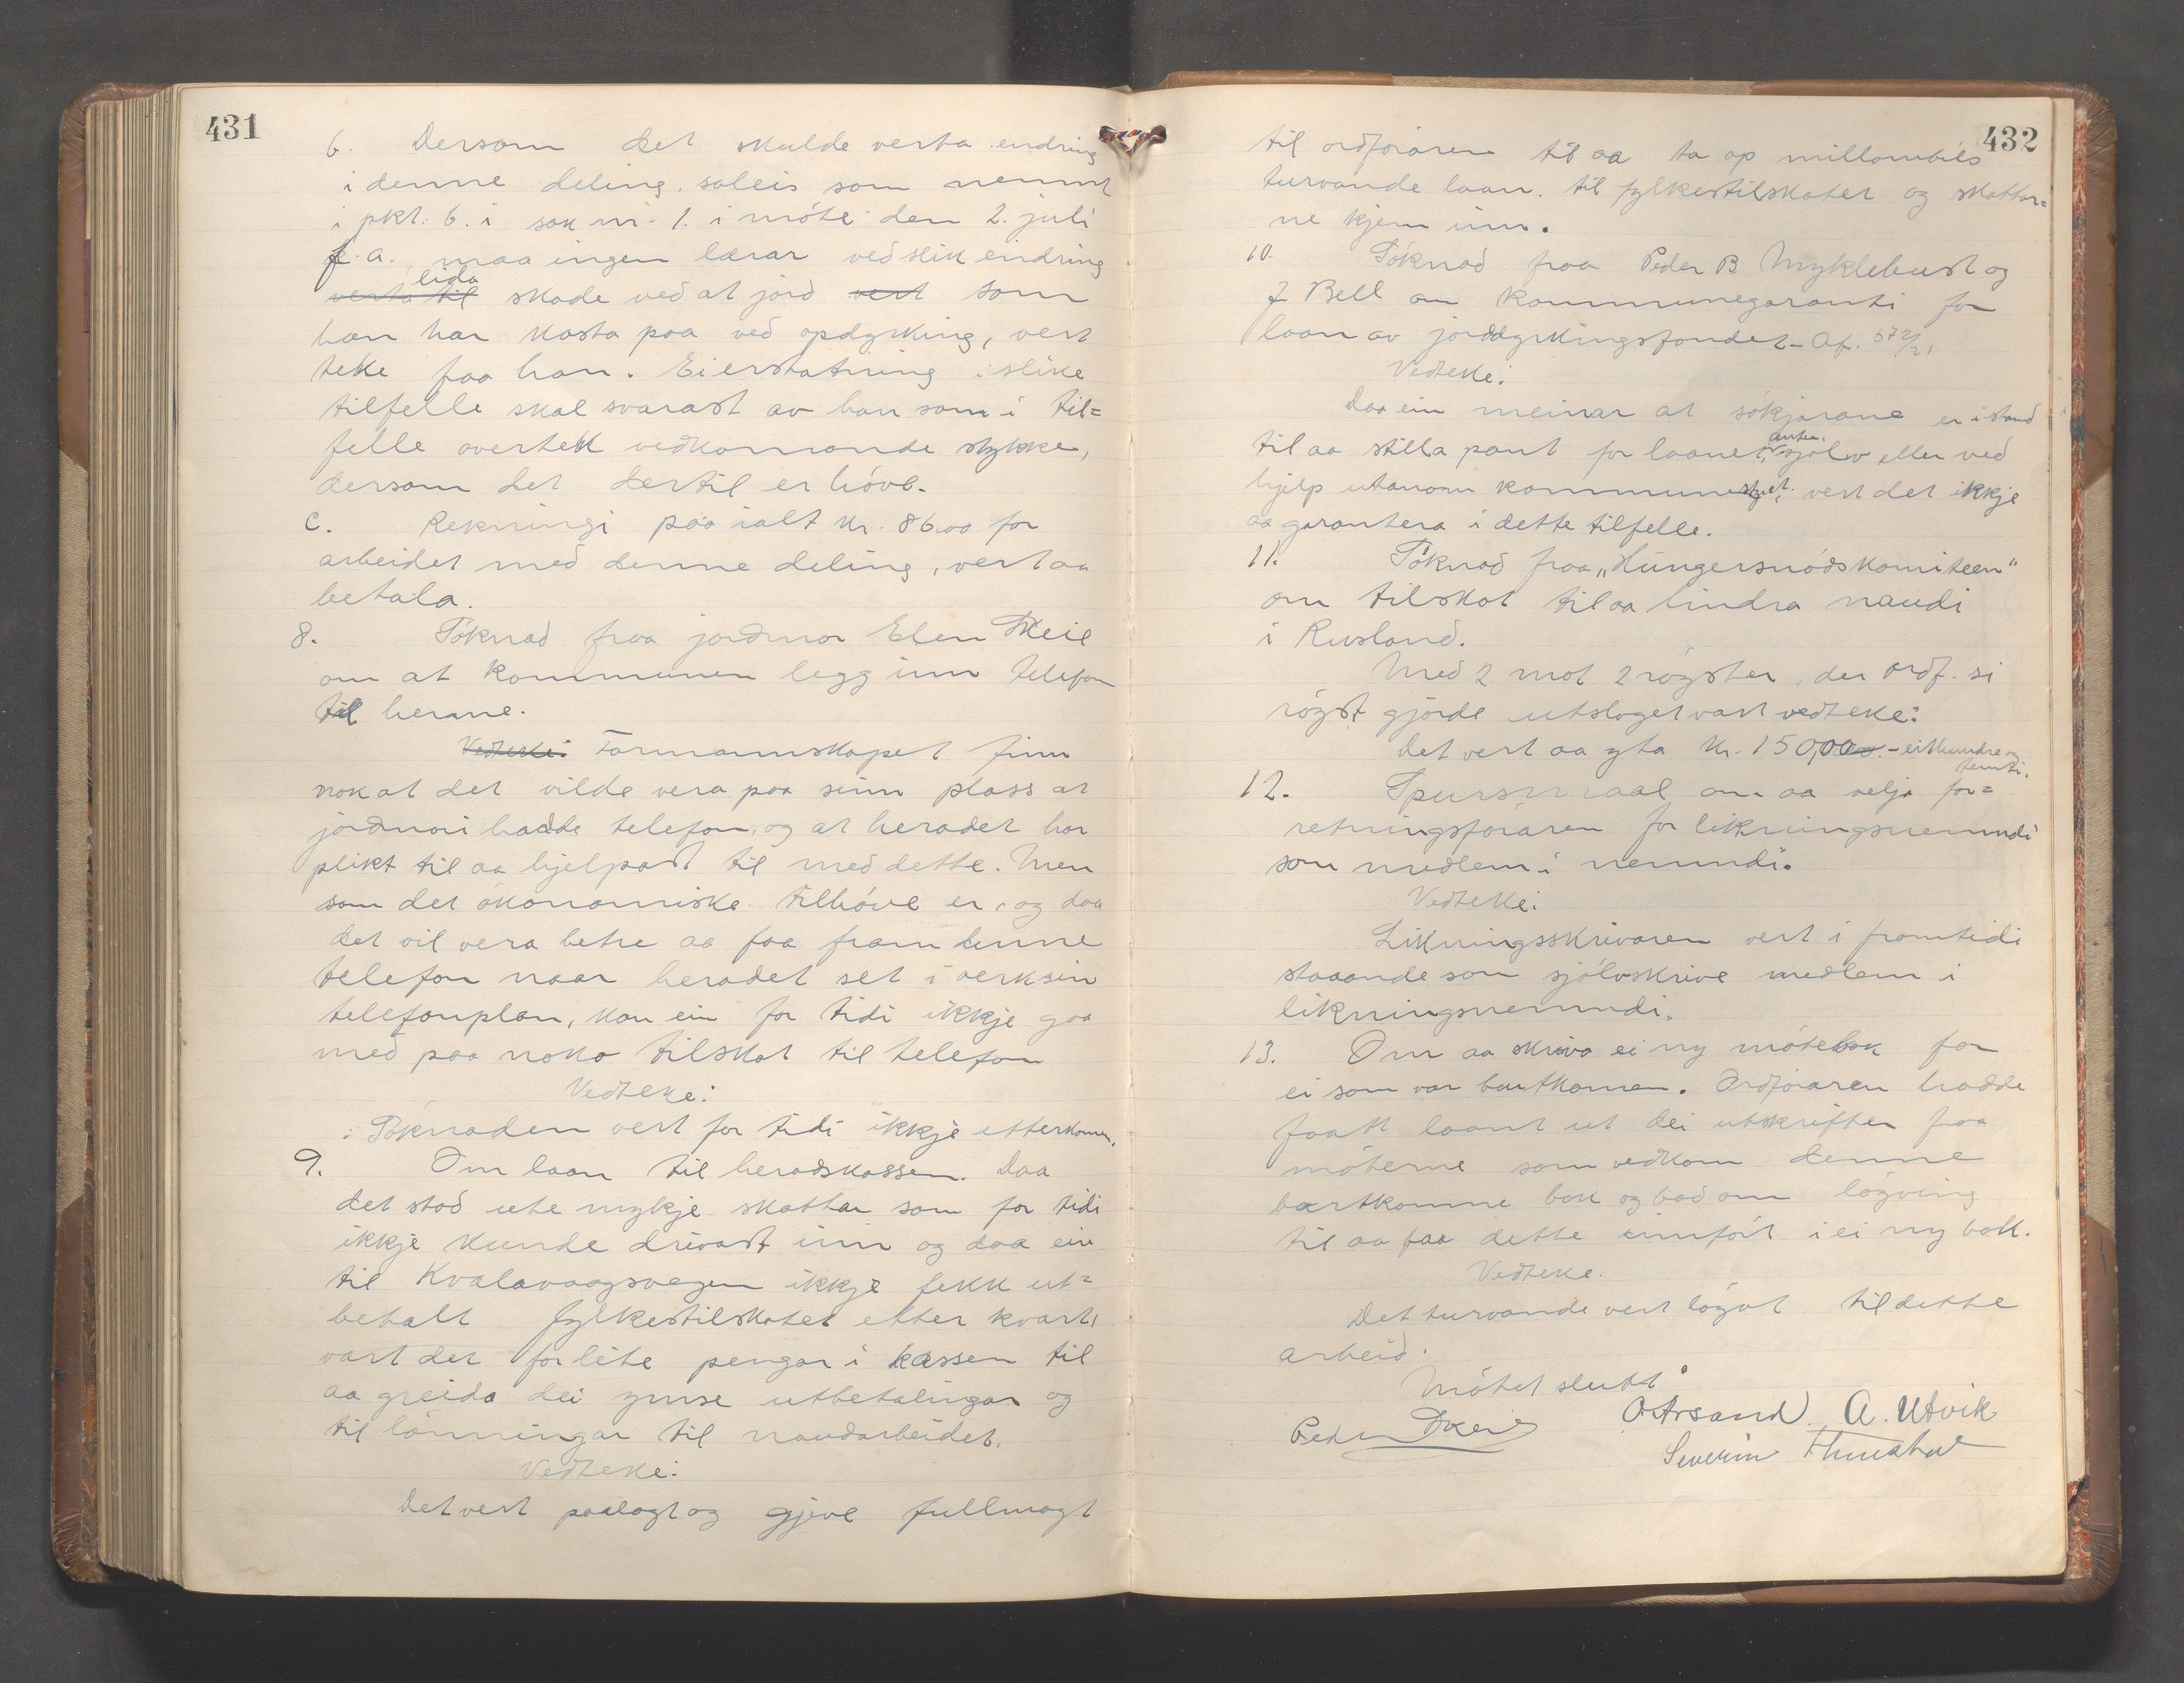 431
b. Dersom det skulde verta endring
i denne deling, soleis som nemnt
i pkt. 6. i sak nr. 1. i möte den 2. juli
f.a., maa ingen lærar ved slik endring
verta til lida skade ved at jord vert som
han har kosta paa ved opdyrking, vert
teke fraa han. Ei erstatning i slike
tilfelle skal svarast av han som i til=
felle overtek vedkomande stykke,
dersom det dertil er hóve.
C. Rekningi paa ialt kr. 86.00 for
arbeidet med denne deling, vert aa
betala.
8. Söknad fraa jordmor Elen Skeie
om at kommunen legg inn telefon
til henne.
Vedteke: Formannskapet finn
nok at det vilde vera paa sinn plass at
jordmori hadde telefon, og at heradet har
plikt til aa hjelpast til med dette. Men
som det ökonomiske tilhóve er, og daa
det vil vera betre aa faa fram denne
telefon naar heradet set i verk sin
telefonplan, kan ein for tidi ikkje gaa
med paa noko tilskot til telefon
Vedteke:
Söknaden vert for tidi ikkje etterkomen.
9. Om laan til heradskassen. Daa
det stod ute mykje skattar som for tidi
ikkje kunde drivast inn og daa ein
til Kvalavaagsvegen ikkje fekk ut=
betalt fylkestilskotet etter kvart,
vart det for lite pengar i kassen til
aa greida dei ymse utbetalingar og
til lönningar til naudarbeidet.
Vedteke:
Det vert paalagt og gjeve fullmagt
432
til ordföraren til aa ta op millombils
turvande laan. til fylkestilskotet og skattar=
ne kjem inn.
10. Söknad fraa Peder B Myklebust og
J. Bell om kommunegaranti for
laan av jorddyrkingsfondet. Af. 672/21
Vedteke:
Daa ein meinar at sökjarane er istand
til aa stilla pant for laanet, anten sjölv eller ved
hjelp utanom kommunestyret, vert det ikkje
aa garantera i dette tilfelle.
11. Söknad fraa „Hungersnödskomiteen"
om tilskot til aa lindra naudi
i Rusland.
Med 2 mot 2 röyster, der ordf. si
röyst gjorde utslaget vart vedteke:
Det vert aa yta kr. 150,00 - eitthundre og
femti.
12. Spursmaal om aa velja for=
retningsföraren for likningsnemndi
som medlem i nemndi.
Vedteke:
Likningsskrivaren vert i framtidi
staaande som sjölvskrive medlem i
likningsnemndi.
13. Om aa skriva ei ny mötebok for
ei som var burtkomen. Ordföraren hadde
faatt laant ut dei utskrifter fraa
möterne som vedkom denne
burtkomne bok og bad om löyving
til aa faa dette innfört i ei ny bok.
Vedteke.
Det turvande vert löyvt til dette
arbeid.
Mötet slutt.
Peder Skeie O Arsand. A. Utvik
Severin